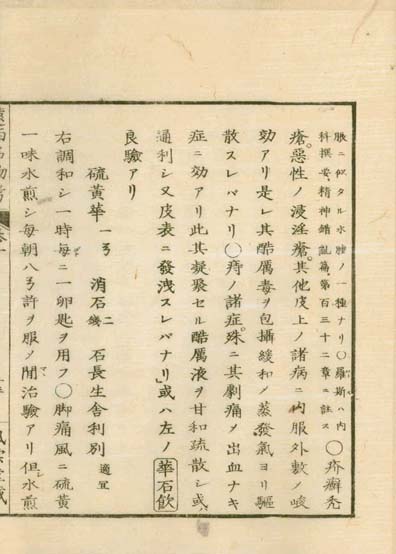 脹ニ似タル水腫ノ一種ナリ〇羅斯ハ内
科撰要精神錯亂篇第百三十二章ニ註ス
〇疥癬禿
瘡惡性ノ浸淫瘡其他皮上ノ諸病ニ内服外敷ノ峻
効アリ是レ其酷厲毒ヲ包攝緩和メ蒸發氣ヨリ驅
散スレバナリ〇痔ノ諸症殊ニ其劇痛メ出血ナキ
症ニ効アリ此其凝聚セル酷厲液ヲ甘和疏散シ或
通利シ又皮表ニ發洩スレバナリ」或ハ左ノ華石飲
良驗アリ
硫黄華 一ヲ 消石 二錢 石長生舎利別 適宜
右調和シ一時毎ニ一卵匙ヲ用フ〇脚痛風ニ硫黄
一味水煎シ毎朝八ヲ許ヲ服メ間治驗アリ但水煎